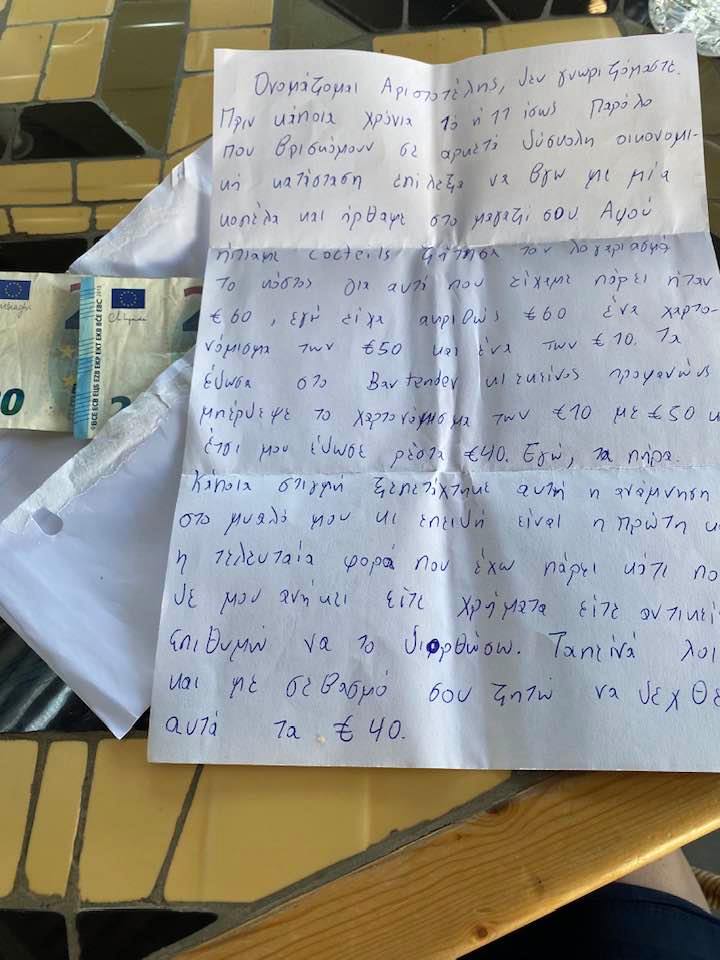 Ονομάζομαι Αριστοτέλης, δεν γνωριζόμαστε.
Πριν κάποια χρόνια 10 ή 11 ίσως Παρόλο
που βρισκόμουν σε αρκετά δύσκολη οικονομι-
κή κατάσταση επίλεξα να βγω με μία
κοπέλα και ήρθαμε στο μαγαζί σου. Αφού
ήπιαμε Cocteils ζήτησα τον λογαριασμό
Το κόστος για αυτά που είχαμε πάρει ήταν
€60, εγώ είχα ακριβώς €60 ένα χαρτο-
νόμισμα των €50 και ένα των €10. Τα
έδωσα στο Bartender κι εκείνος προφανώς
μπέρδεψε το χαρτονόμισμα των €10 με €50 κ
έτσι μου έδωσε ρέστα €40. Εγώ, τα πήρα.
Κάποια στιγμή ξεπετάχτηκε αυτή η ανάμνηση
στο μυαλό μου κι επειδή είναι η πρώτη κ
η τελευταία φορά που έχω πάρει κάτι πο
δε μου ανήκει είτε χρήματα είτε αντικεί
επιθυμώ να το διορθώσω. Ταπεινά λοι
και με σεβασμό σου ζητώ να δεχθε
αυτά τα €40.
BCE ECB